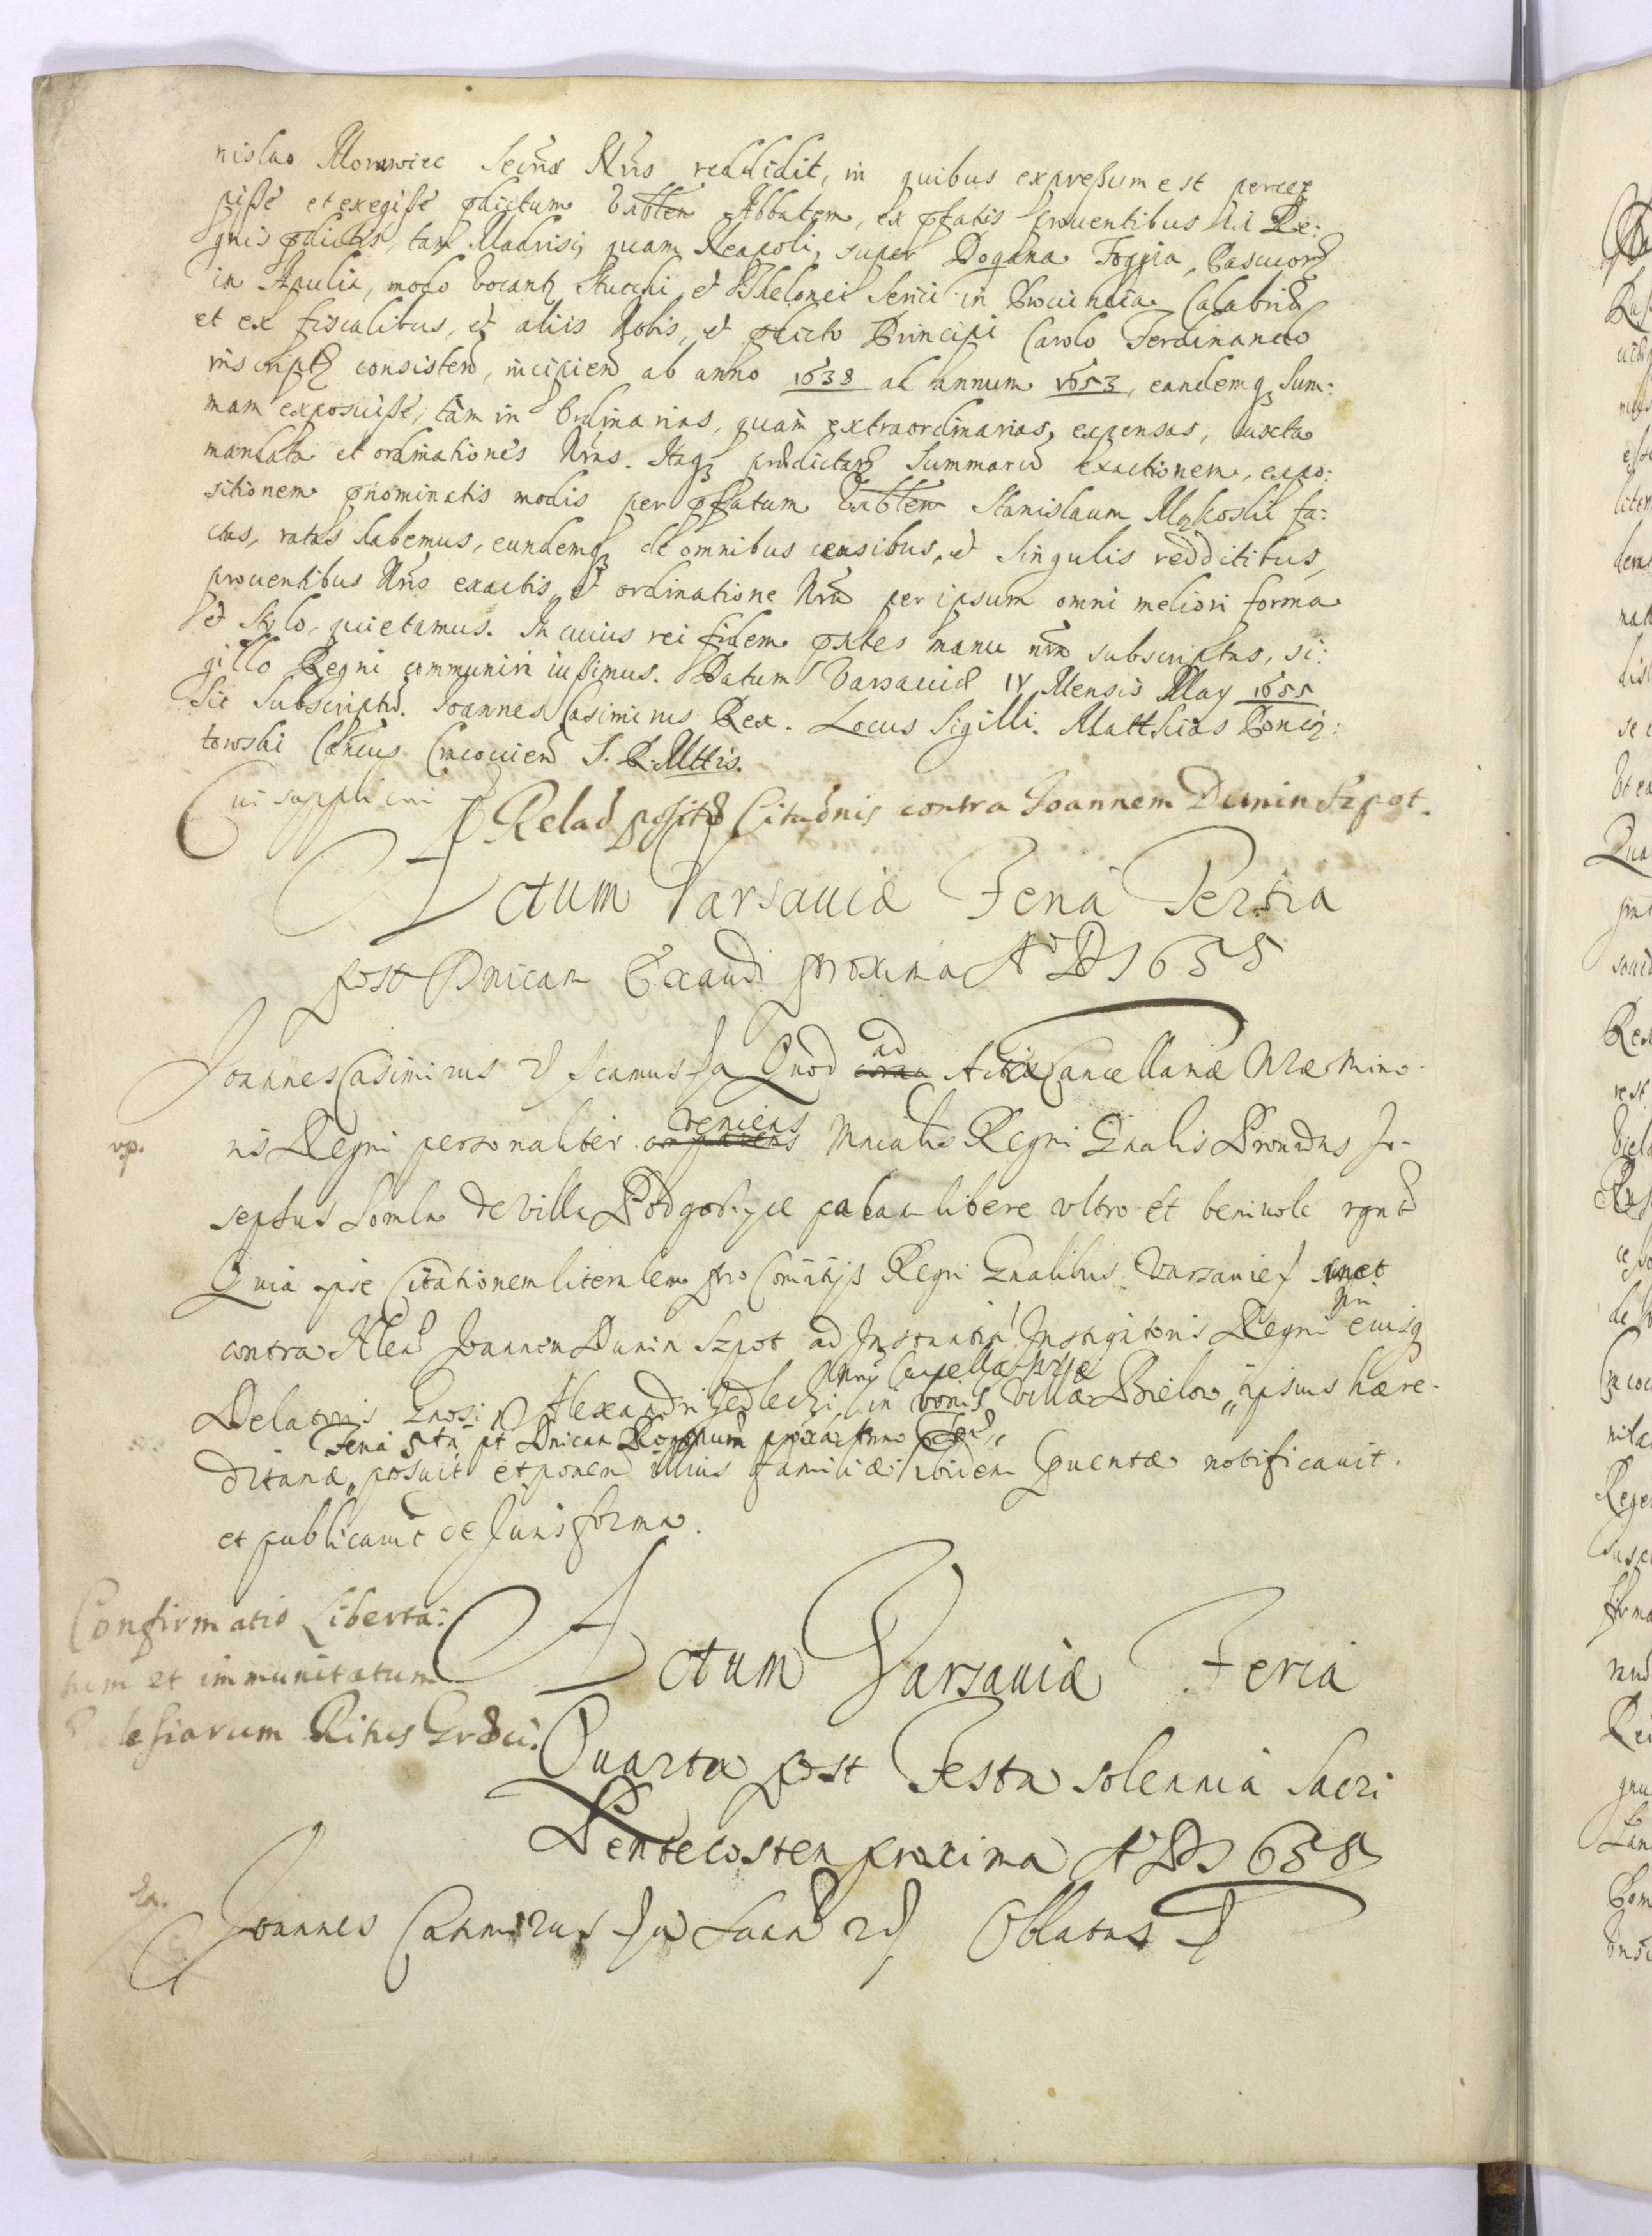 nislao Morawiec Secris Nris reddidit, in quibus expressum est percep
pisse et exegisse pdictum Vrbblem Abbatem, ex pfatis prouentibus in Re:
gnis pdictis, tam Madrisij quam Neapoli, super Dogana Foggia, Pascuorz
in Apulia, modo vocantz Stucchi, et Thelonei Serici in Prouincia Calabriæ
et ex fiscalibus, et aliis Nobis, et pdicto Principi Carolo Ferdinando
inscriptz consisten, incipien ab anno 1638 ad annum 1653, eandemqz Sum:
mam exposuisse, tàm in ordinarias, quàm extraordinarias, expensas, iuxta
mandata et ordinationes Nras. Itaqz prædictarz Summarũ exactionem, expo:
sitionem pnominatis modis per pfatum Vrbblem Stanislaum Mzkoski fa:
ctas, ratas habemus, eundemqz de omnibus censibus, et singulis redditibus,
prouentibus Nris exactis et ordinatione Nra per ipsum omni meliori forma
et stylo, quietamus. In cuius rei fidem pntes manu nra subscriptas, si:
gillo Regni communiri iussimus. Datum Varsauiæ IV Mensis May 1655
Sic Subscriptũ. Ioannes Casimirus Rex. Locus Sigilli. Matthias Ponię:
towski Cancus Cracouien S. R. Mttis.
Cui supplicni Relaõ positæ Citaõnis contra Joannem Dunin Szpot.
Actum Varsauiæ Feria Tertia
post Dnicam Exaudi proxima Aº D 1655
Joannes Casimirus Scamus Sa Quod ad coram Acta Cancellariæ Nræ Mino-
vp. ris Regni personaliter veniens comparens Regni Gnalis Prouidus Jo-
sephus Somla de villa Podgorze palam libere vltro et beniuole
Quia ipse Citationem literalem pro Comitijs Regni Gnalibus Varsauien
contra Joannem Dunin Szpot ad Instantiã Instigatoris Regni eiusq
Delatoris Gnosi Alexandri Gedlecki Capellæ in bonis villæ Bielow ipsius hære-
Feria pt Dnicam proxa Anno
ditariæ posuit et ponen illius familiæ ibidem notificauit.
et publicauit de Juris forma.
Confirmatio Liberta:
tum et immunitatum
Ecclesiarum Ritus Græci.
Actum Varsauiæ Feria
Quarta post Festa solennia Sacri
Pentecosten proxima Aº D 1655
Joannes Casimirus Oblatus